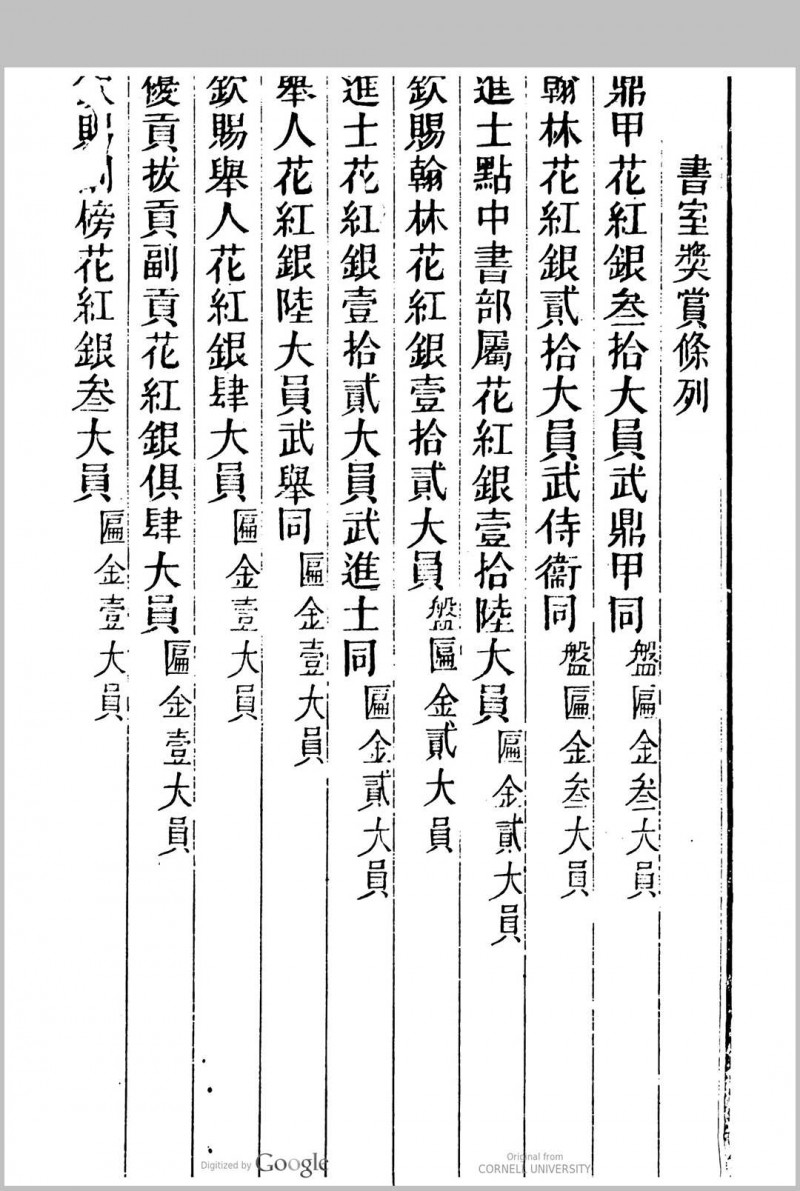 書室獎賞條列
鼎甲花紅銀叁拾大員武鼎甲同盤匾金叁大員
翰林花紅銀貳拾大員武侍衞同盤匾金叁大員
進士點中書部屬花紅銀壹拾陸大員匾金貳大員
欽賜翰林花紅銀壹拾貳大員盤匾金貳大員
進士花紅銀壹拾貳大員武進士同匾金貳大員
舉人花紅銀陸大員武舉同匾金壹大員
欽賜舉人花紅銀肆大員匾金壹大員
優貢拔貢副貢花紅銀俱肆大員匾金壹大員
賜榜花紅銀叁大員匾金壹大員
Digitized by Google
Original from
CORNELL UNIVERSITY